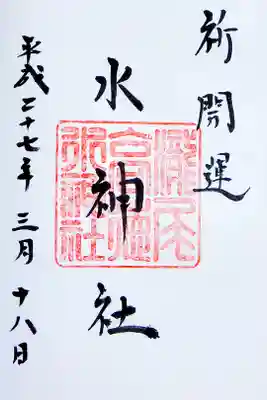 祈開運
水神社
平成二十七年三月十八日